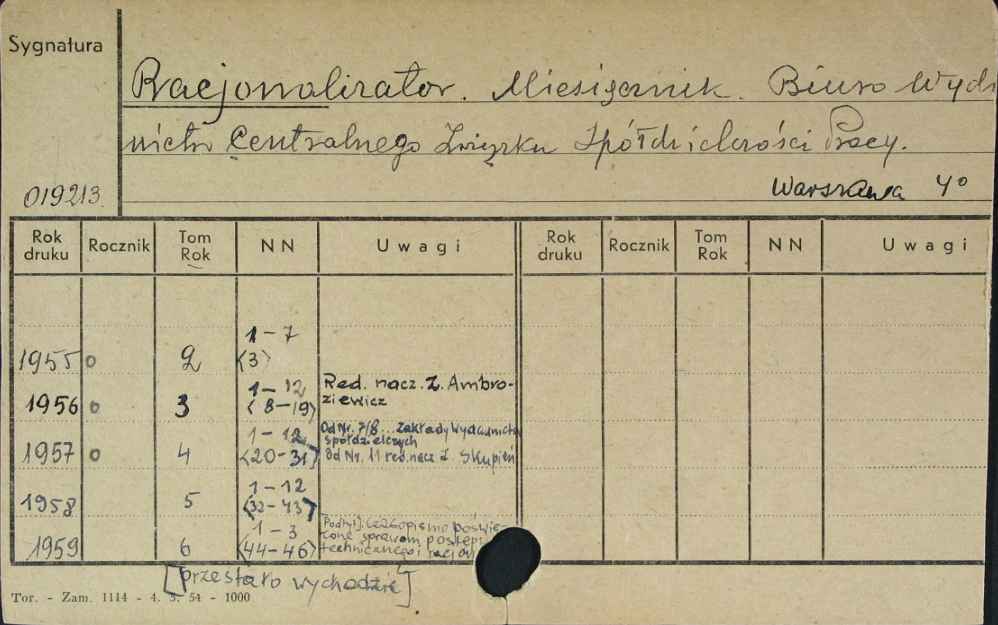 Sygnatura
Racjonalizator. Miesięcznik. Biuro Wyda
nictw Centralnego Związku Spółdzielczości Pracy.
019213. Warszawa 4°
Rok druku Rocznik Tom Rok NN Uwagi Rok druku Rocznik Tom Rok NN Uwagi
1955 o 2 1-7 <3>
1956 o 3 1-12 <8-19> Red. nacz. Z. Ambro-
ziewicz
1957 o 4 1-12 <20-31> Od Nr. 7/8... Zakłady Wydawnictw
spółdzielczych
Od Nr. 11 red. nacz. Z. Skupień
1958 5 1-12 <32-43>
1959 6 1-3 <44-46> [Podtyt.] Czasopismo poświę-
cone sprawom postępu
technicznego i racjon
[przestało wychodzić]
Tor. - Zam. 1114 - 4. 3. 54 - 1000